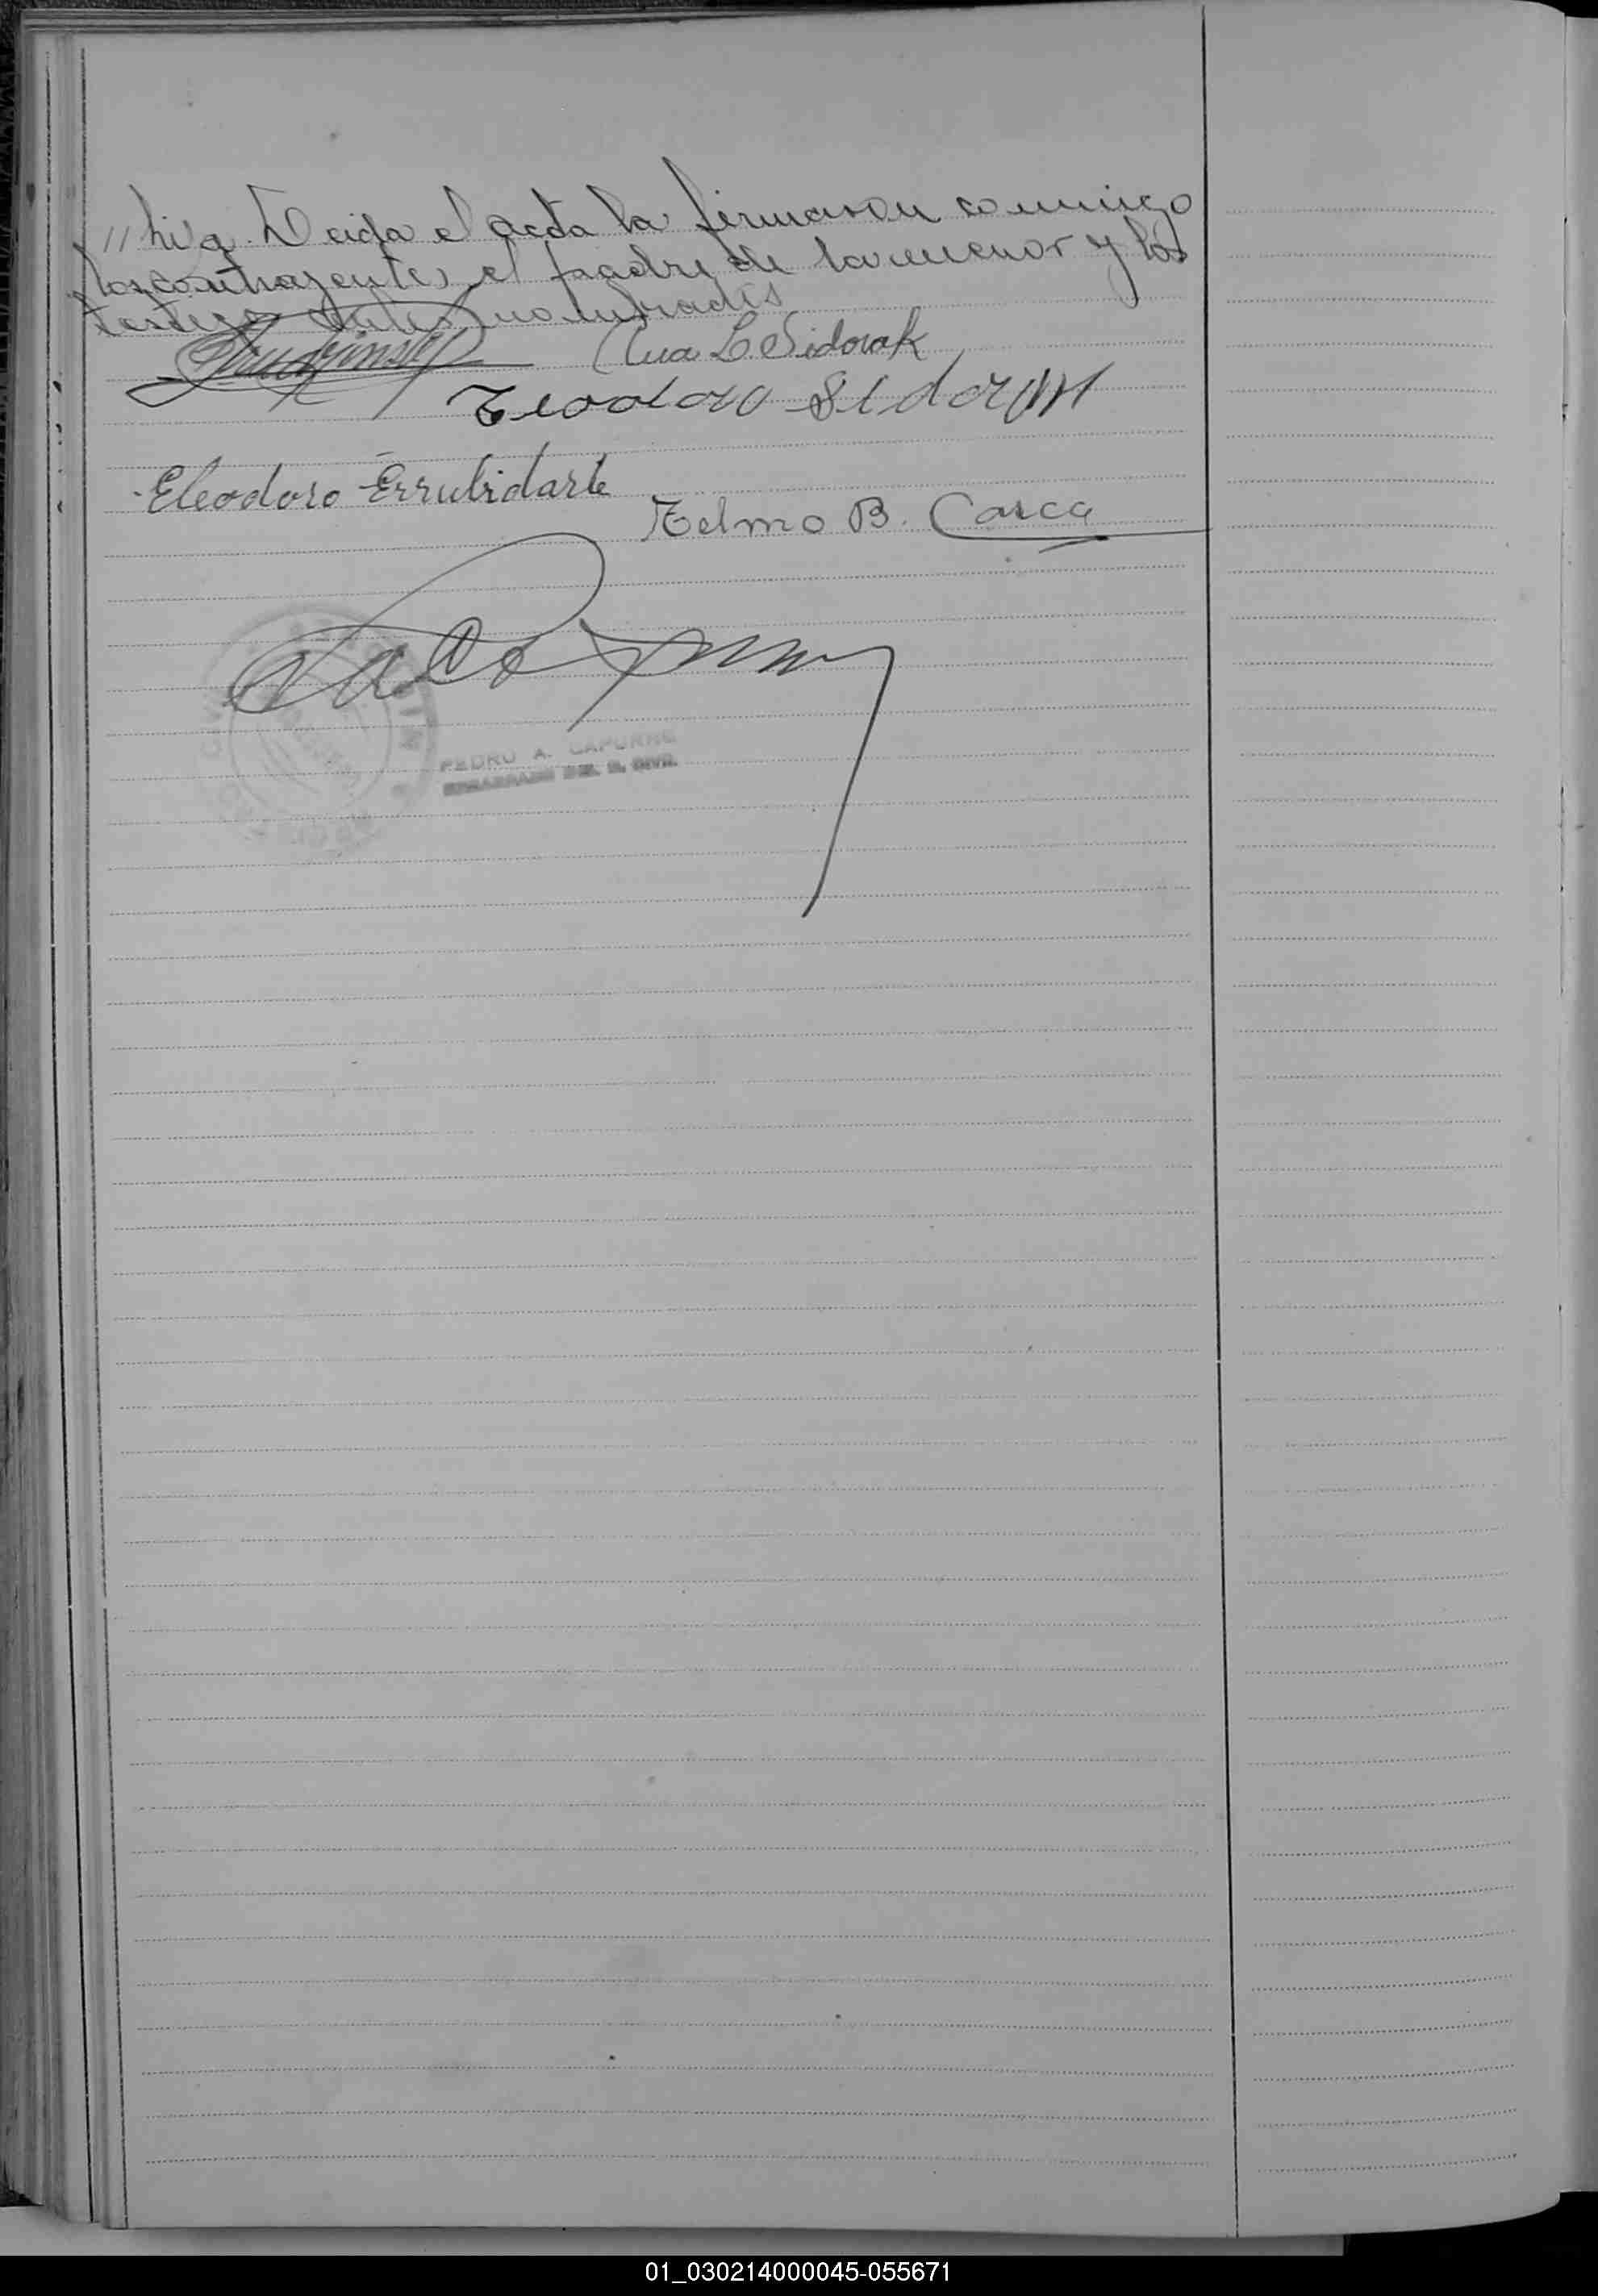 // hija. Leida el acta la firmaron conmigo
los contrayentes, el padre de la menor y los
testigos antes nombrados
Ana L Sidorak
Teodoro Sidorak
Eleodoro Errubidarte
Telmo B. Casca
PEDRO A. CAPURRO
ENCARGADO DEL R. CIVIL
01_030214000045-055671